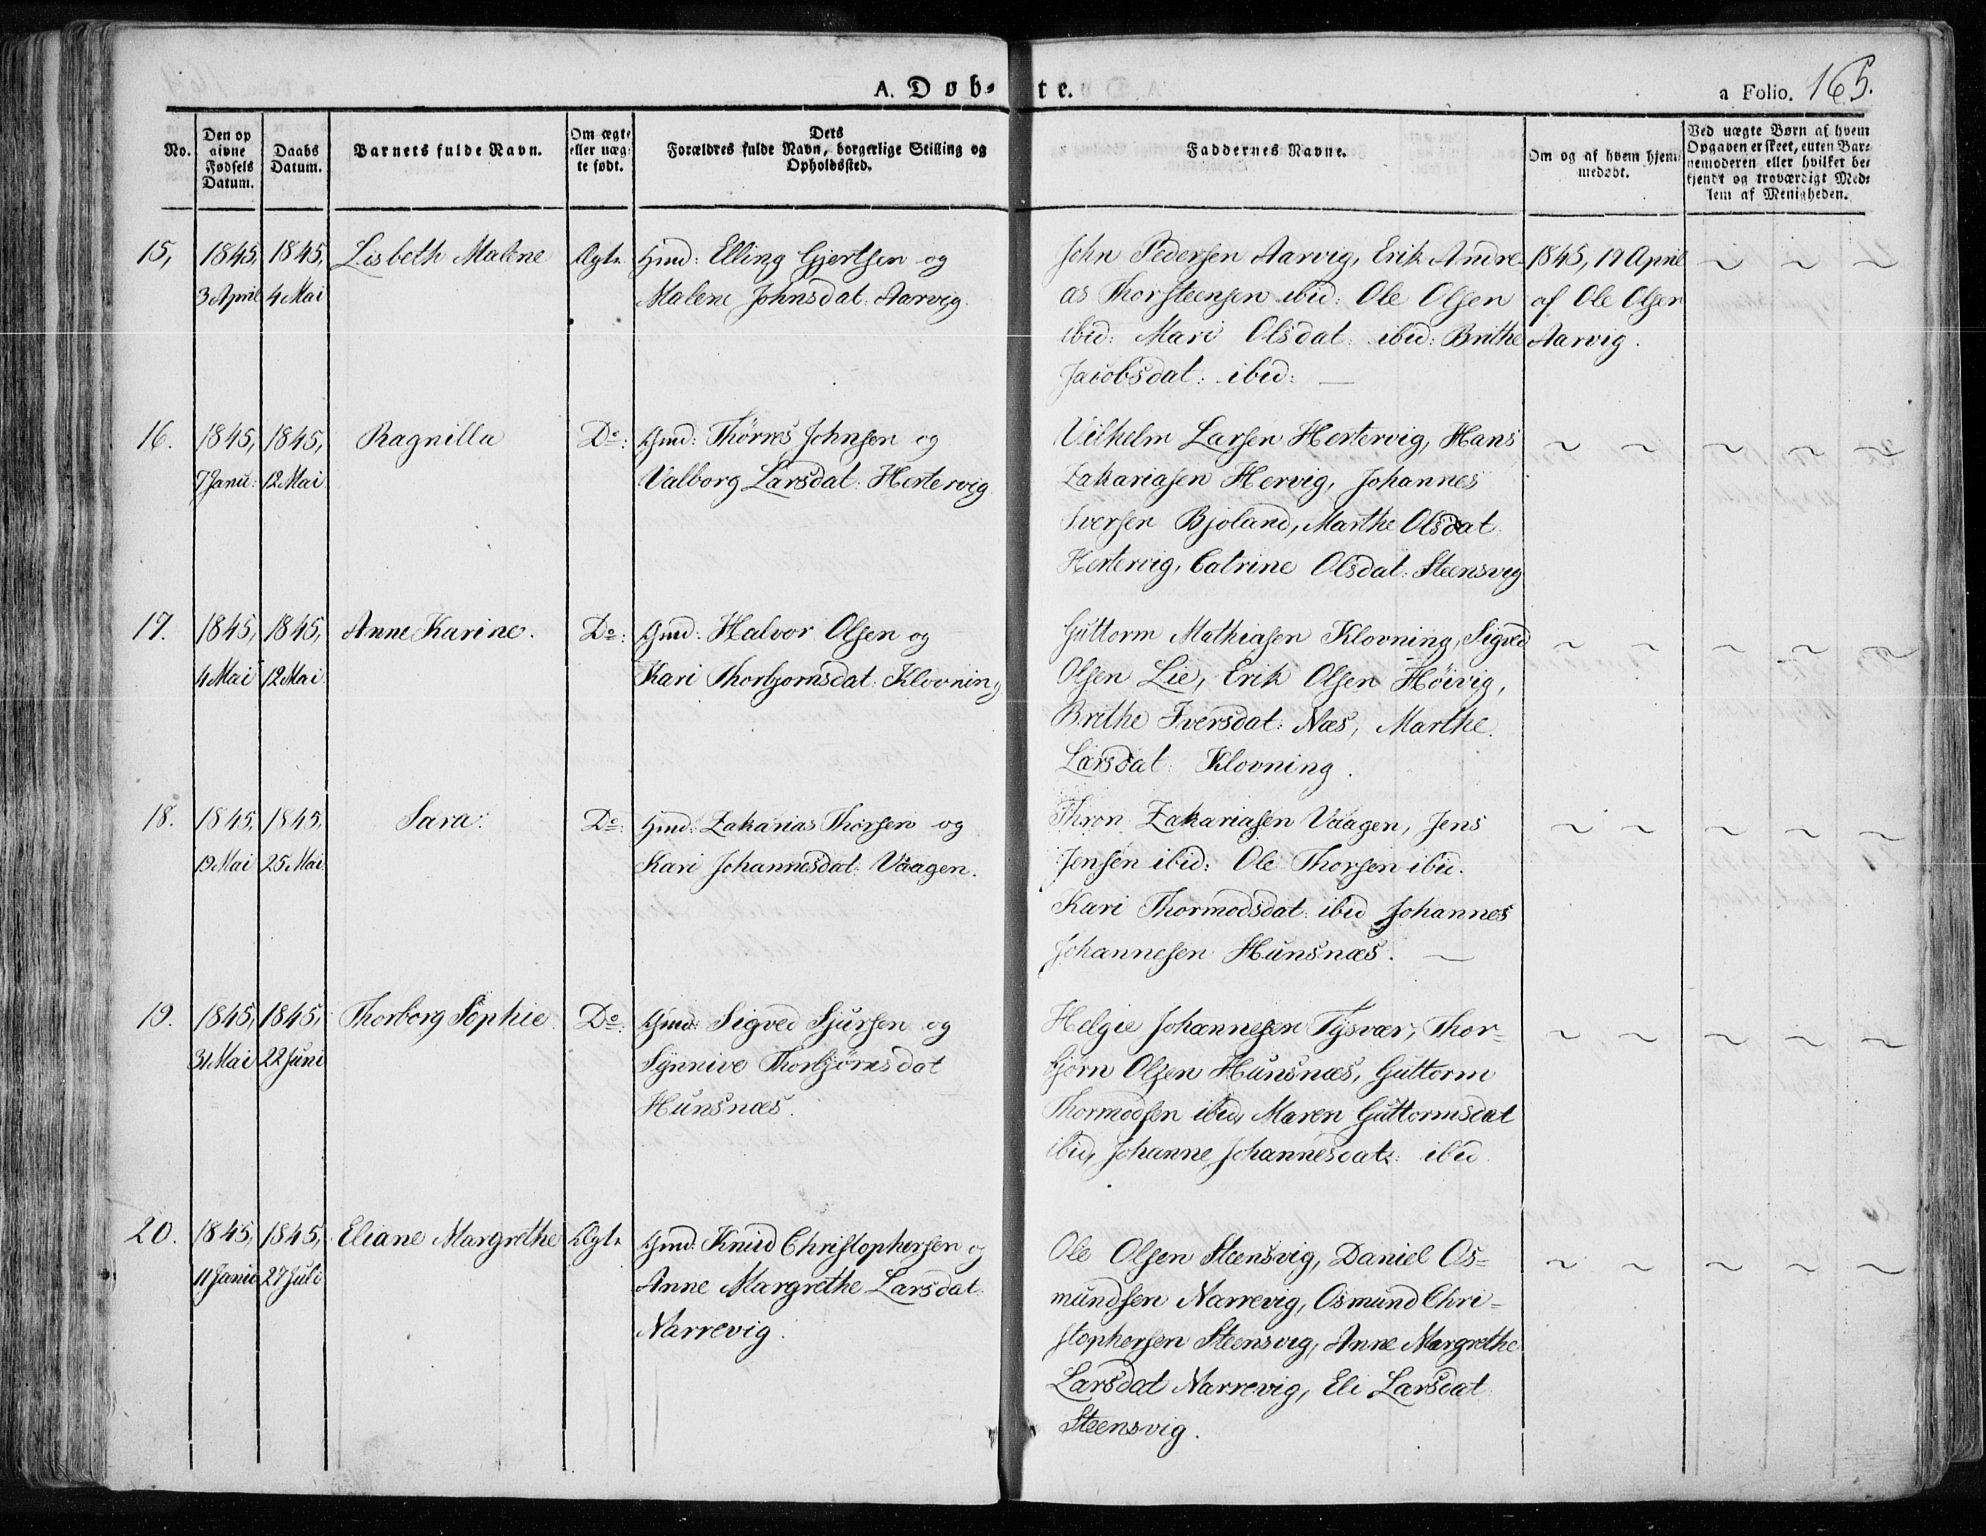 A. Døb- te.
a Folio. 165.
No.
Den op
givne
Fødsels
Datum.
Daabs
Datum.
Barnets fulde Navn.
Om ægte
eller uæg-
te født.
Dets
Forældres fulde Navn, borgerlige Stilling og
Opholdssted.
Faddernes Navne.
Om og af hvem hjem-
medøbt.
Ved uægte Børn af hvem
Opgaven er skeet, enten Bar-
nemoderen eller hvilket be-
kjendt og troværdigt Med-
lem af Menigheden.
15,
1845,
3 April
1845,
4 Mai
Lisbeth Malene
Ægte
Gmd: Elling Gjertsen og
Malene Johnsdat: Aarvig.
John Pedersen Aarvig, Erik Andre-
as Thorsteensen ibid: Ole Olsen
ibid: Mari Olsdat: ibid: Brithe
Jacobsdat: ibid: —
1845, 19 April
af Ole Olsen
Aarvig.
16.
1845,
7 Janu:
1845,
12 Mai
Ragnilla
Do:
Gmd: Thørres Johnsen og
Valborg Larsdat: Hertervig
Vilhelm Larsen Hertervig, Hans
Zakariasen Hervig, Johannes
Iversen Bjoland, Marthe Olsdat
Hertervig, Catrine Olsdat: Steensvig
17.
1845,
4 Mai
1845,
12 Mai
Anne Karine.
Do:
Gmd: Halvor Olsen og
Kari Thorbjornsdat: Klovning
Guttorm Mathiasen Klovning, Sigved
Olsen Lie, Erik Olsen Høivig,
Brithe Iversdat: Næs, Marthe
Larsdat: Klovning.
18.
1845,
19 Mai
1845,
25 Mai
Sara.
Do:
Gmd: Zakarias Thorsen og
Kari Johannesdat: Vaagen.
Thron Zakariasen Vaagen, Jens
Jensen ibid: Ole Thorsen ibid.
Kari Thormodsdat: ibid Johannes
Johannesen Hunsnæs. —
19.
1845,
31 Mai
1845,
22 Juni
Thorborg Sophie
Do:
Gmd: Sigved Sjursen og
Synnive Thorbjørnsdat
Hunsnæs.
Helgie Johannesen Tysvær, Thor-
bjørn Olsen Hunsnæs, Guttorm
Thormodsen ibid, Maren Guttormsdat
ibid, Johanne Johannesdat: ibid
20.
1845,
11 Janu
1845,
27 Juli
Eliane Margrethe
Ægte
Gmd: Knud Christophersen og
Anne Margrethe Larsdat:
Narrevig.
Ole Olsen Steensvig, Daniel Os-
mundsen Narrevig, Osmund Chri-
stophersen Steensvig, Anne Margrethe
Larsdat Narrevig, Eli Larsdat
Steensvig.